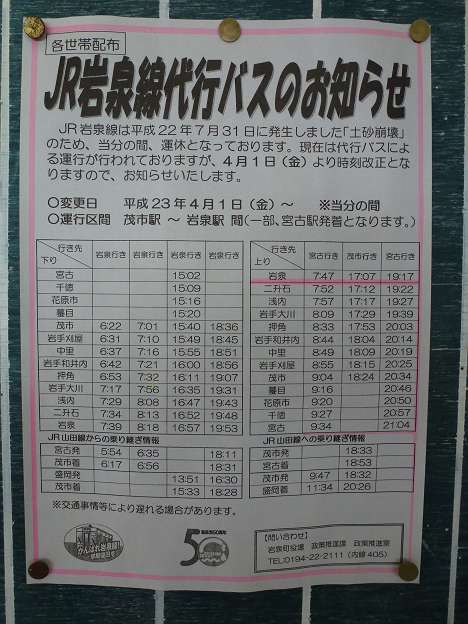 各世帯配布
JR岩泉線代行バスのお知らせ
JR岩泉線は平成22年7月31日に発生しました「土砂崩壊」
のため、当分の間、運休となっております。現在は代行バスによ
る運行が行われておりますが、4月1日（金）より時刻改正とな
りますので、お知らせいたします。
○変更日 平成23年4月1日（金）～ ※当分の間
○運行区間 茂市駅 ～ 岩泉駅 間（一部、宮古駅発着となります。）
下り 行き先 岩泉行き 岩泉行き 岩泉行き 岩泉行き
宮古 15:02
千徳 15:09
花原市 15:16
蟇目 15:20
茂市 6:22 7:01 15:40 18:36
岩手刈屋 6:31 7:10 15:49 18:45
中里 6:37 7:16 15:55 18:51
岩手和井内 6:42 7:21 16:00 18:56
押角 6:53 7:32 16:11 19:07
岩手大川 7:17 7:56 16:35 19:31
浅内 7:29 8:08 16:47 19:43
二升石 7:34 8:13 16:52 19:48
岩泉 7:39 8:18 16:57 19:53
JR山田線からの乗り継ぎ情報
宮古発 5:54 6:35 18:11
茂市着 6:17 6:56 18:31
盛岡発 13:51 16:30
茂市着 15:33 18:28
上り 行き先 宮古行き 茂市行き 宮古行き
岩泉 7:47 17:07 19:17
二升石 7:52 17:12 19:22
浅内 7:57 17:17 19:27
岩手大川 8:09 17:29 19:39
押角 8:33 17:53 20:03
岩手和井内 8:44 18:04 20:14
中里 8:49 18:09 20:19
岩手刈屋 8:55 18:15 20:25
茂市 9:04 18:24 20:34
蟇目 9:16 20:46
花原市 9:20 20:50
千徳 9:27 20:57
宮古 9:34 21:04
JR山田線への乗り継ぎ情報
茂市発 18:33
宮古着 18:53
茂市発 9:47 18:32
盛岡着 11:34 20:26
※交通事情等により遅れる場合があります。
がんばれ岩泉線!
50
【問い合わせ】
岩泉町役場 政策推進課 政策推進室
TEL:0194-22-2111（内線405）